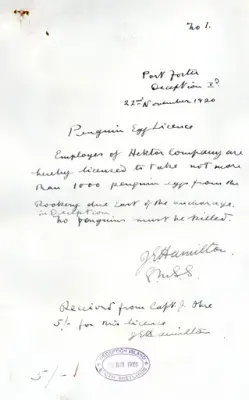 No 1.
Port Foster
Deception Id
22nd November 1920
Penguin Egg Licence
Employes of Hektor Company are
hereby licenced to take not more
than 1000 penguin eggs from the
Rookery due East of the anchorage.
in Deception.
No penguins must be killed.
J E Hamilton.
Received from Capt J.
5/- for this licence
J E Hamilton
DECEPTION ISLAND
5/-